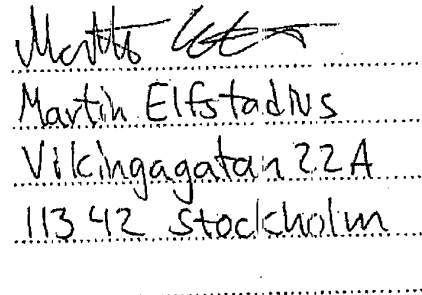 Martin Elfstadius
Vikingagatan 22A
113 42 Stockholm